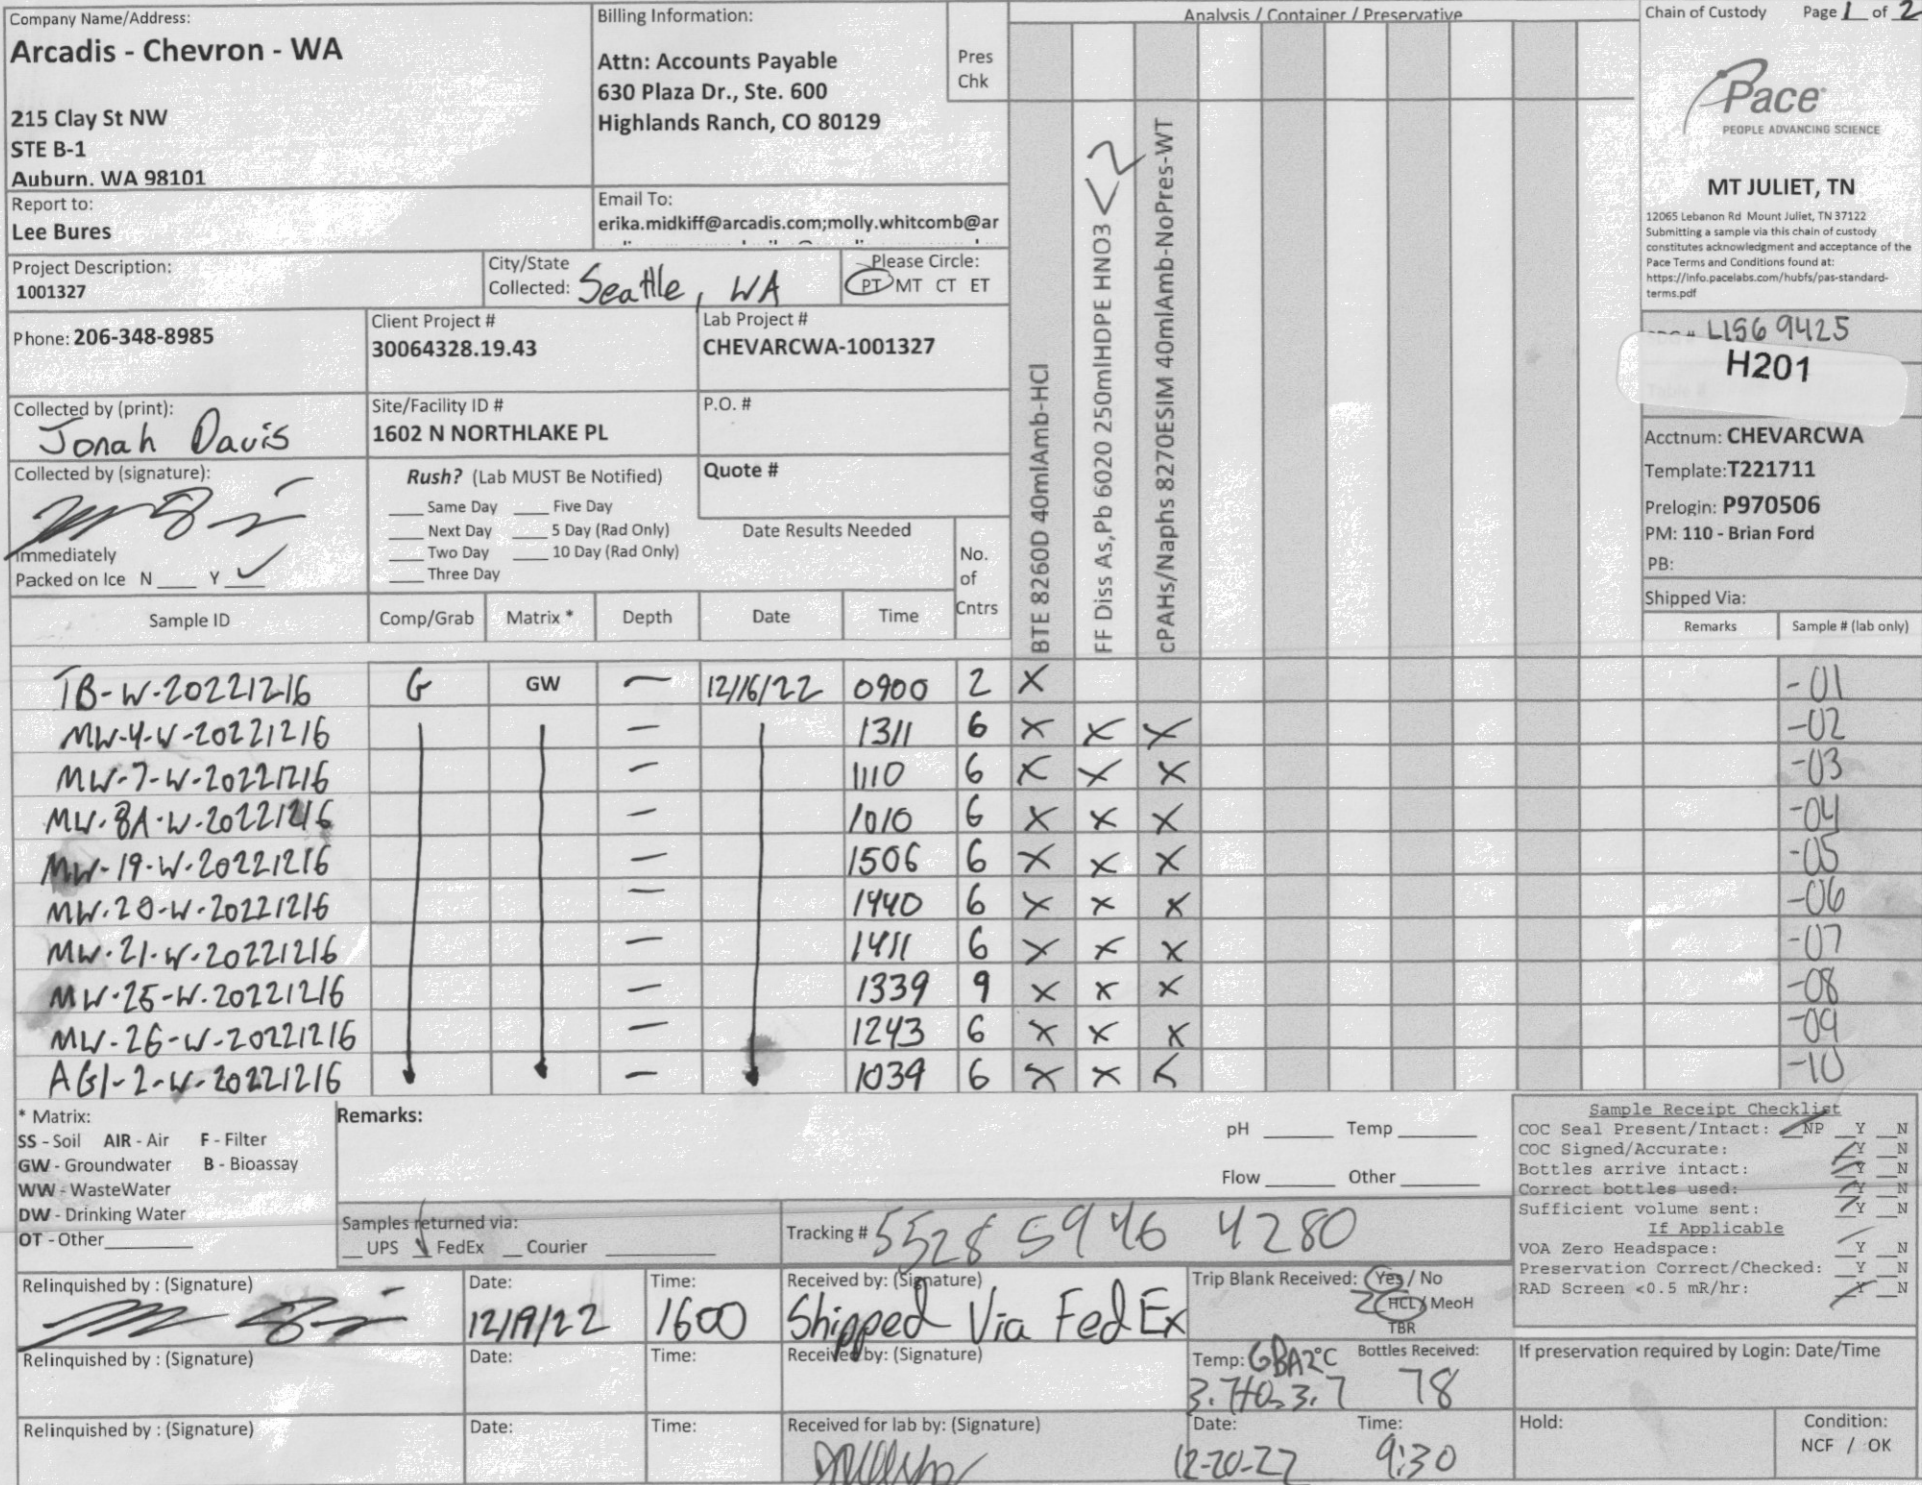 Company Name/Address:
Arcadis - Chevron - WA
215 Clay St NW
STE B-1
Auburn. WA 98101
Billing Information:
Attn: Accounts Payable
630 Plaza Dr., Ste. 600
Highlands Ranch, CO 80129
Pres
Chk
Analysis / Container / Preservative
Chain of Custody Page 1 of 2
Pace
PEOPLE ADVANCING SCIENCE
MT JULIET, TN
12065 Lebanon Rd Mount Juliet, TN 37122
Submitting a sample via this chain of custody
constitutes acknowledgment and acceptance of the
Pace Terms and Conditions found at:
https://info.pacelabs.com/hubfs/pas-standard-
terms.pdf
Report to:
Lee Bures
Email To:
erika.midkiff@arcadis.com;molly.whitcomb@ar
Project Description:
1001327
City/State
Collected: Seattle, WA
Please Circle:
PT MT CT ET
Phone: 206-348-8985
Client Project #
30064328.19.43
Lab Project #
CHEVARCWA-1001327
L1569425
H201
Collected by (print):
Jonah Davis
Site/Facility ID #
1602 N NORTHLAKE PL
P.O. #
Acctnum: CHEVARCWA
Template:T221711
Prelogin: P970506
PM: 110 - Brian Ford
PB:
Shipped Via:
Collected by (signature):
Immediately
Packed on Ice N ___ Y ✓
Rush? (Lab MUST Be Notified)
___ Same Day ___ Five Day
___ Next Day ___ 5 Day (Rad Only)
___ Two Day ___ 10 Day (Rad Only)
___ Three Day
Quote #
Date Results Needed
No.
of
Cntrs
BTE 8260D 40mlAmb-HCl
FF Diss As,Pb 6020 250mlHDPE HNO3 <2
cPAHs/Naphs 8270ESIM 40mlAmb-NoPres-WT
Sample ID Comp/Grab Matrix * Depth Date Time
Remarks Sample # (lab only)
TB-W-20221216 G GW — 12/16/22 0900 2 X -01
MW-4-W-20221216 — 1311 6 X X X -02
MW-7-W-20221216 — 1110 6 X X X -03
MW-8A-W-20221216 — 1010 6 X X X -04
MW-19-W-20221216 — 1506 6 X X X -05
MW-20-W-20221216 — 1440 6 X X X -06
MW-21-W-20221216 — 1411 6 X X X -07
MW-25-W-20221216 — 1339 9 X X X -08
MW-26-W-20221216 — 1243 6 X X X -09
AGI-2-W-20221216 — 1039 6 X X X -10
* Matrix:
SS - Soil AIR - Air F - Filter
GW - Groundwater B - Bioassay
WW - WasteWater
DW - Drinking Water
OT - Other
Remarks:
pH ___ Temp ___
Flow ___ Other ___
Sample Receipt Checklist
COC Seal Present/Intact: NP Y N
COC Signed/Accurate: Y N
Bottles arrive intact: Y N
Correct bottles used: Y N
Sufficient volume sent: Y N
If Applicable
VOA Zero Headspace: Y N
Preservation Correct/Checked: Y N
RAD Screen <0.5 mR/hr: Y N
Samples returned via:
UPS ✓ FedEx Courier
Tracking # 5528 5946 4280
Relinquished by : (Signature)
Date:
12/19/22
Time:
1600
Received by: (Signature)
Shipped Via FedEx
Trip Blank Received: Yes / No
2 HCL / MeoH
TBR
Relinquished by : (Signature)
Date:
Time:
Received by: (Signature)
Temp: °C
3.7+0=3.7
Bottles Received:
78
If preservation required by Login: Date/Time
Relinquished by : (Signature)
Date:
Time:
Received for lab by: (Signature)
Date:
12-20-22
Time:
9:30
Hold:
Condition:
NCF / OK